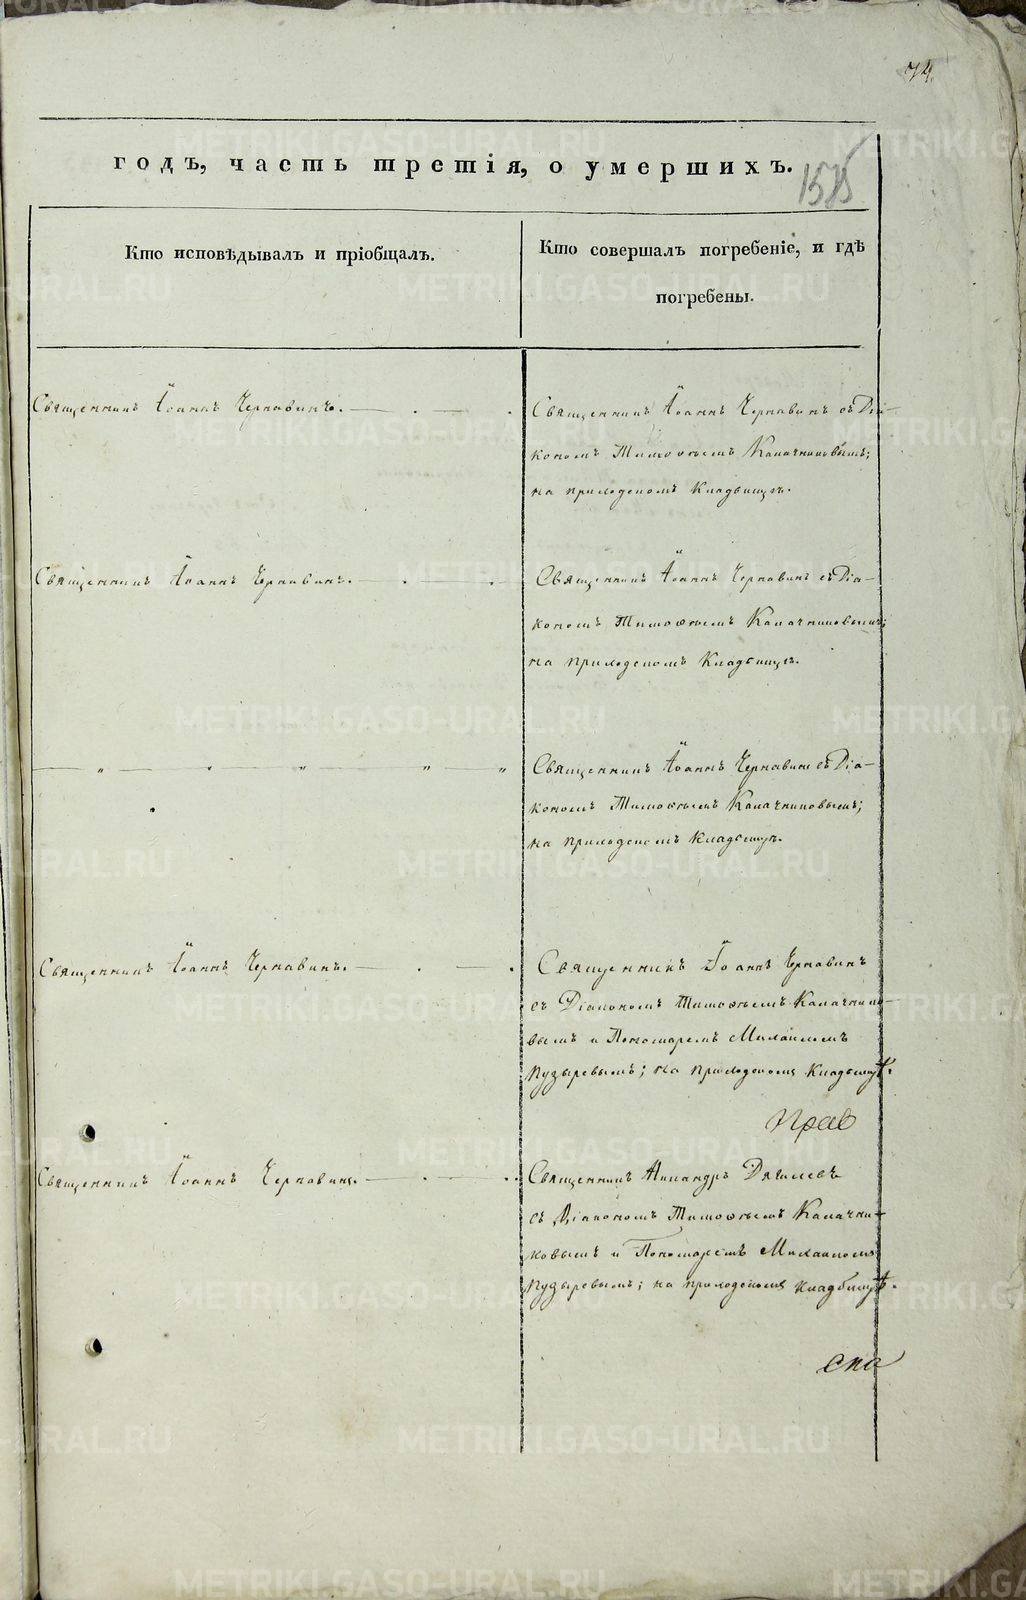 74.
годъ, часть третія, о умершихъ.
Кто исповѣдывалъ и пріобщалъ.
Кто совершалъ погребеніе, и гдѣ
погребены.
Священникъ Іоаннъ Чернавинъ.
Священникъ Іоаннъ Чернавинъ съ Діа-
кономъ Тимоѳеемъ Калачниковымъ;
на приходскомъ Кладбищѣ.
Священникъ Іоаннъ Чернавинъ.
Священникъ Іоаннъ Чернавинъ съ Діа-
кономъ Тимоѳеемъ Калачниковымъ;
на приходскомъ Кладбищѣ.
Священникъ Іоаннъ Чернавинъ съ Діа-
кономъ Тимоѳеемъ Калачниковымъ;
на приходскомъ Кладбищѣ.
Священникъ Іоаннъ Чернавинъ.
Священникъ Іоаннъ Чернавинъ
съ Діакономъ Тимоѳеемъ Калачнико-
вымъ и Пономаремъ Михаиломъ
Пузыревымъ; на приходскомъ Кладбищѣ.
Прав
Священникъ Іоаннъ Чернавинъ.
Священникъ Дягилевъ
съ Діакономъ Тимоѳеемъ Калачни-
ковымъ и Пономаремъ Михаиломъ
Пузыревымъ; на приходскомъ кладбищѣ.
спа
METRIKI.GASO-URAL.RU